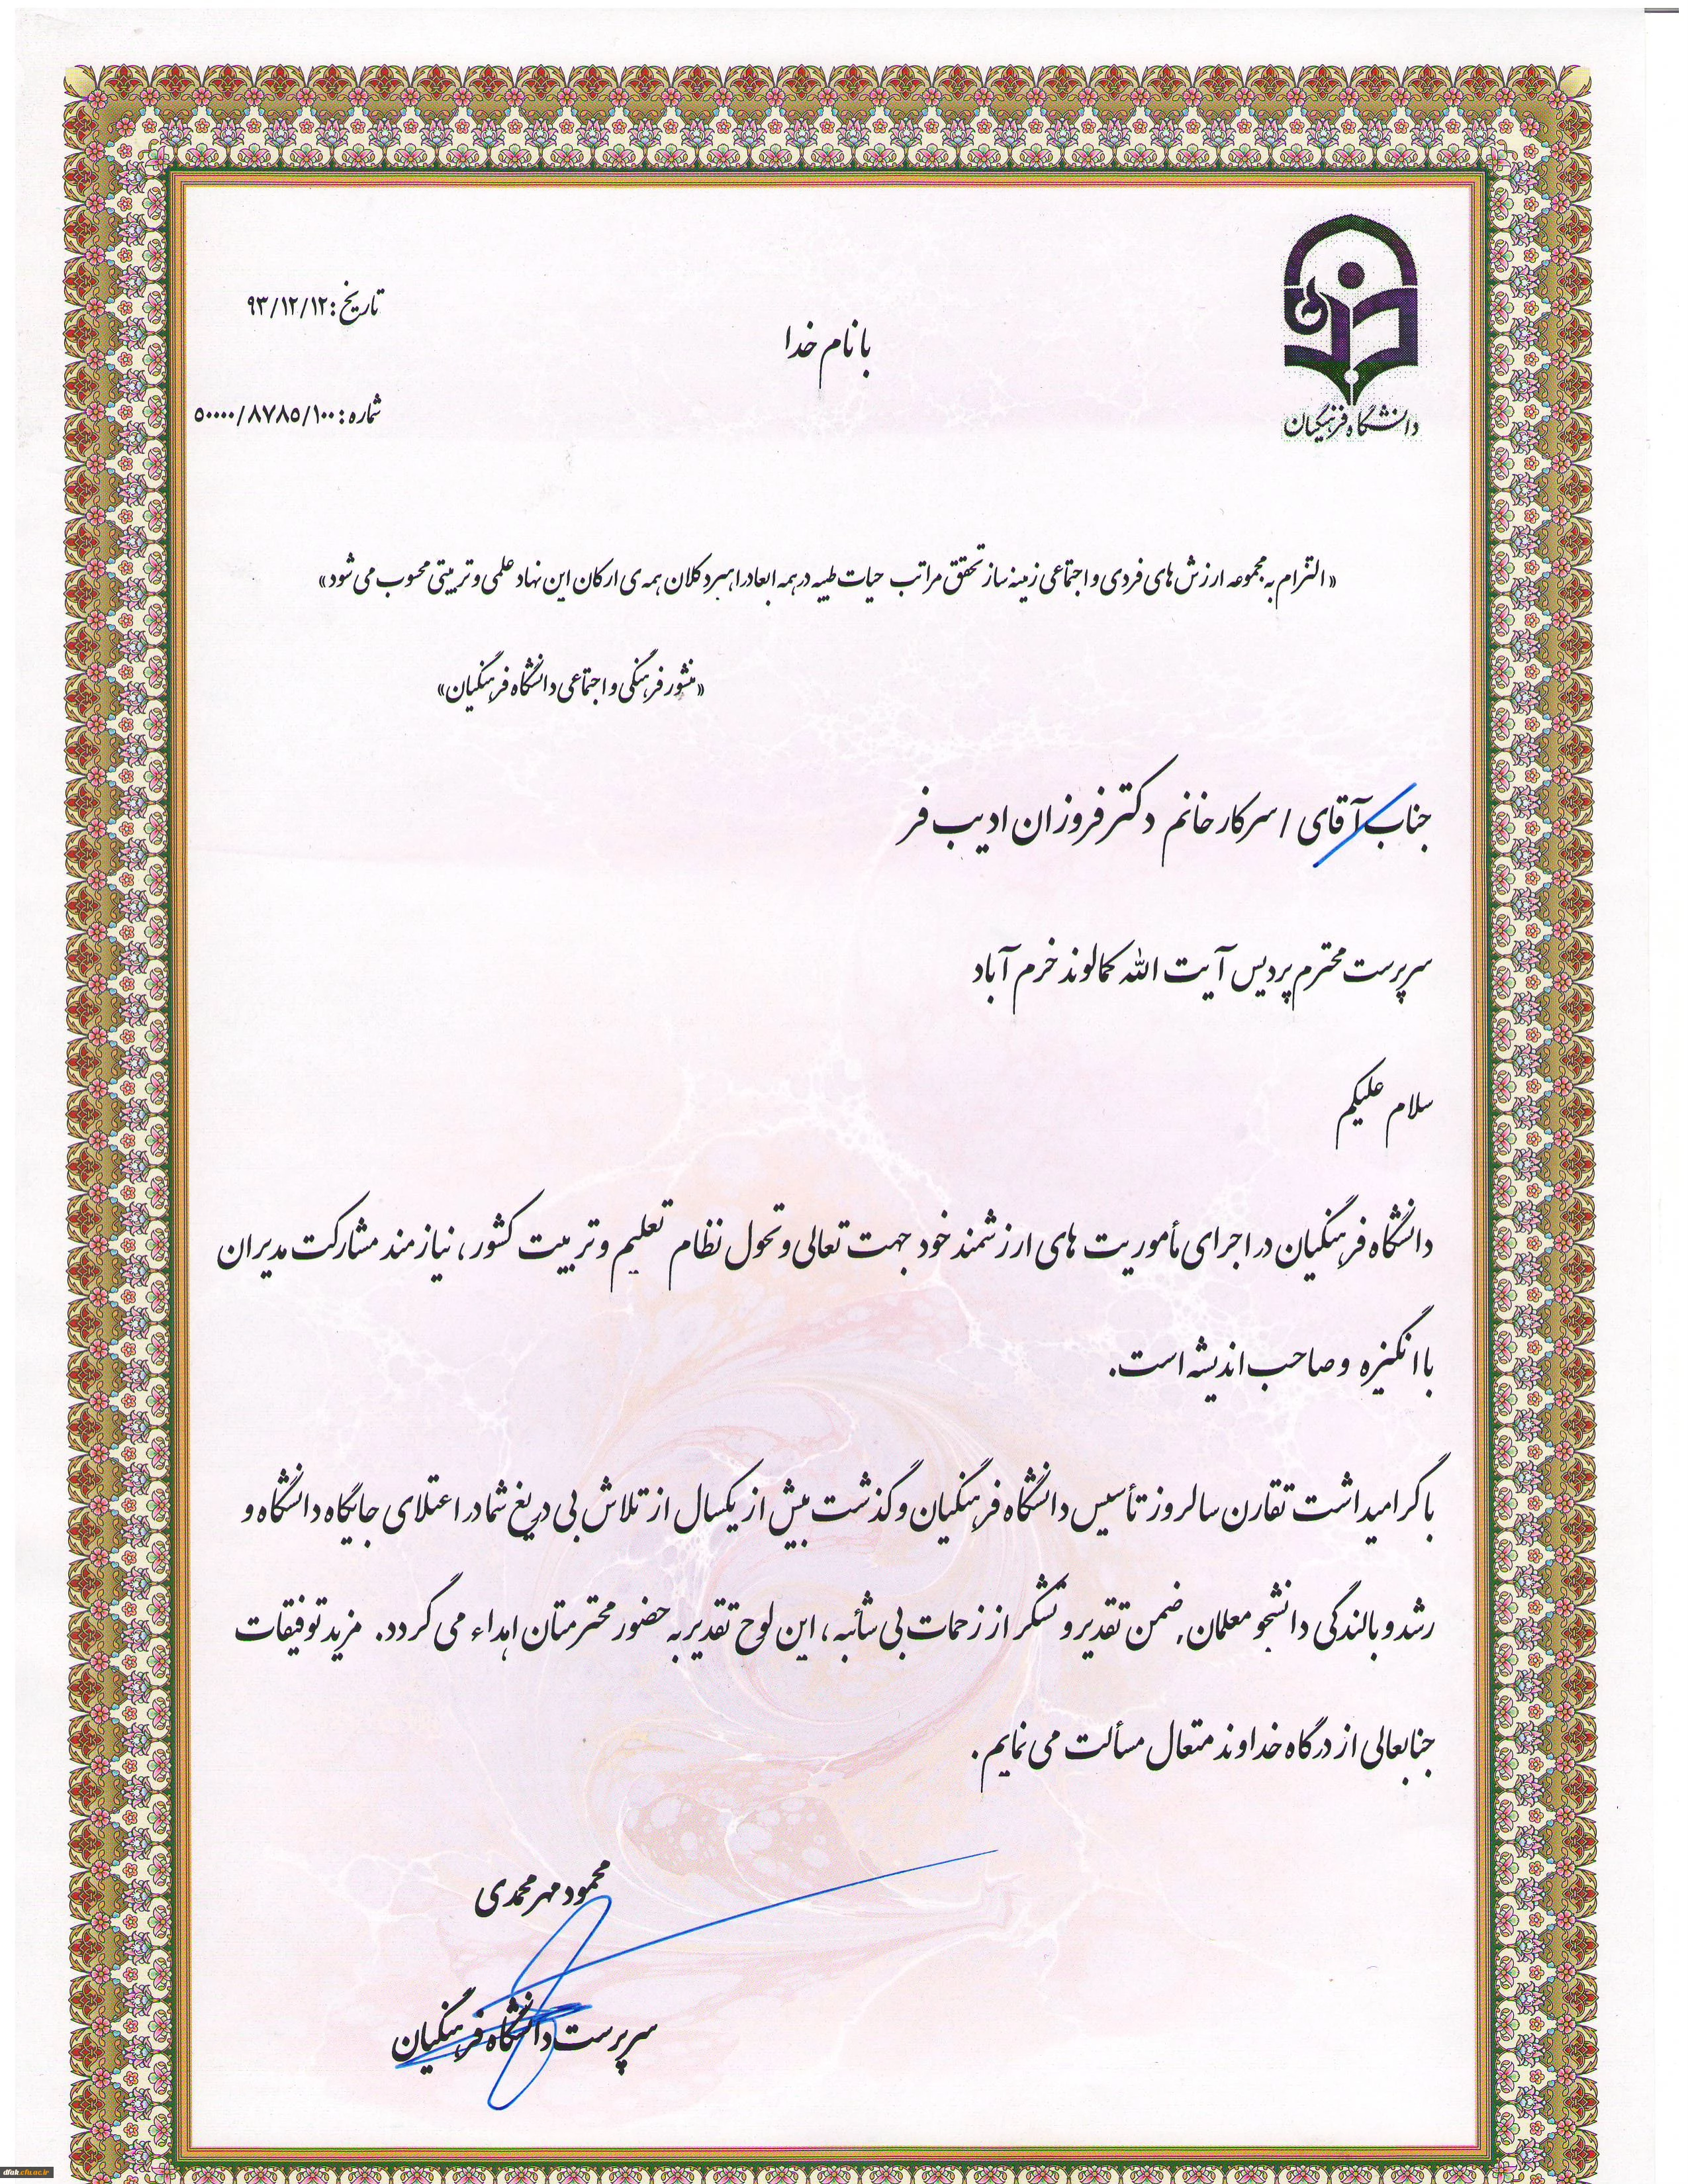 دانشگاه فرهنگیان
تاریخ: ۹۳/۱۲/۱۲
با نام خدا
شماره: ۵۰۰۰۰/۸۷۸۵/۱۰۰
«التزام به مجموعه ارزش های فردی و اجتماعی زمینه ساز تحقق مراتب حیات طیبه در همه ابعاد راهبرد کلان همه ی ارکان این نهاد علمی و تربیتی محسوب می شود»
«منشور فرهنگی و اجتماعی دانشگاه فرهنگیان»
جناب آقای / سرکار خانم دکتر فروزان ادیب فر
سرپرست محترم پردیس آیت الله کمالوند خرم آباد
سلام علیکم
دانشگاه فرهنگیان در اجرای مأموریت های ارزشمند خود جهت تعالی و تحول نظام تعلیم و تربیت کشور، نیازمند مشارکت مدیران
با انگیزه و صاحب اندیشه است.
با گرامیداشت تقارن سالروز تأسیس دانشگاه فرهنگیان و گذشت بیش از یکسال از تلاش بی دریغ شما در اعتلای جایگاه دانشگاه و
رشد و بالندگی دانشجو معلمان, ضمن تقدیر و تشکر از زحمات بی شائبه، این لوح تقدیر به حضور محترمتان اهداء می گردد. مزید توفیقات
جنابعالی از درگاه خداوند متعال مسألت می نمایم.
محمود مهرمحمدی
سرپرست دانشگاه فرهنگیان
dfak.cfu.ac.ir